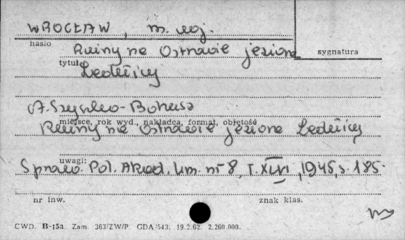 WROCŁAW, m. woj.
hasło
Ruiny na Ostrowie jeziora
sygnatura
tytuł
Lednicy
A. Szyszko-Bohusz
miejsce, rok wyd., nakładca, format, objętość
Ruiny na Ostrowie jeziora Lednicy
uwagi:
Spraw. Pol. Akad. Um. nr 8, T. XLVI, 1945, s. 185-
nr inw.
znak klas.
CWD. B-15a. Zam. 383/ZW/P. GDA/543, 19.2.62. 2.260.000.